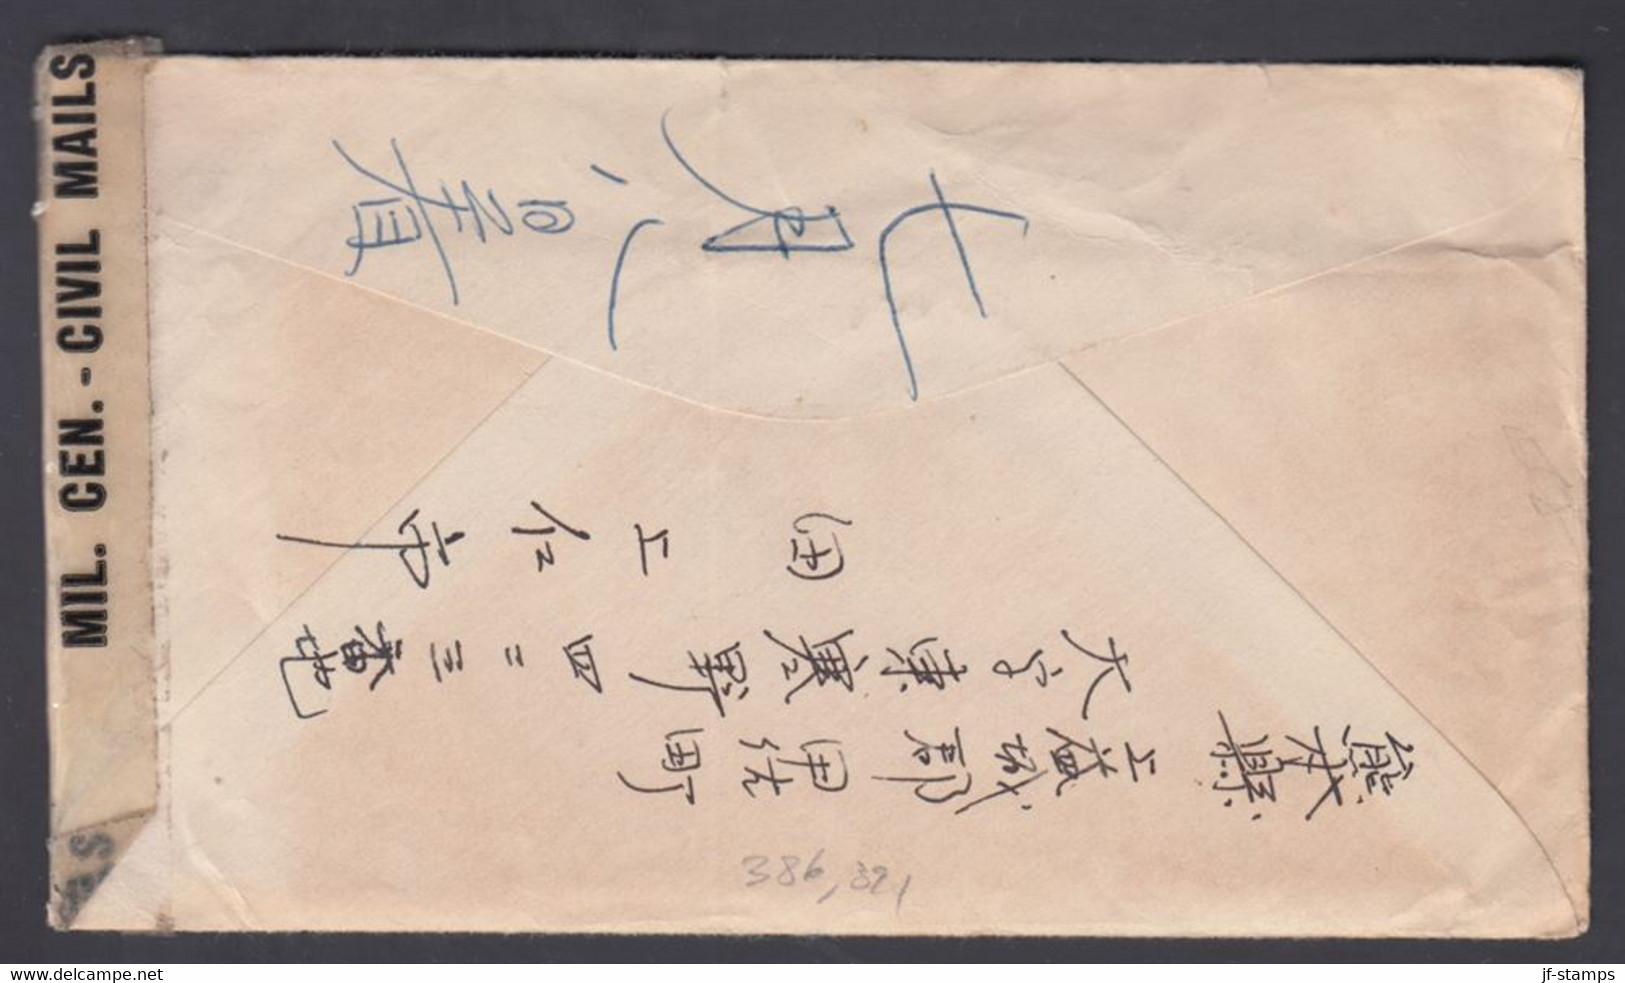 MIL. CEN. - CIVIL MAILS
七月八日着
熊本縣上益城郡甲佐町
大字東寒野四二三番地
田上仁市
www.delcampe.net
jf-stamps